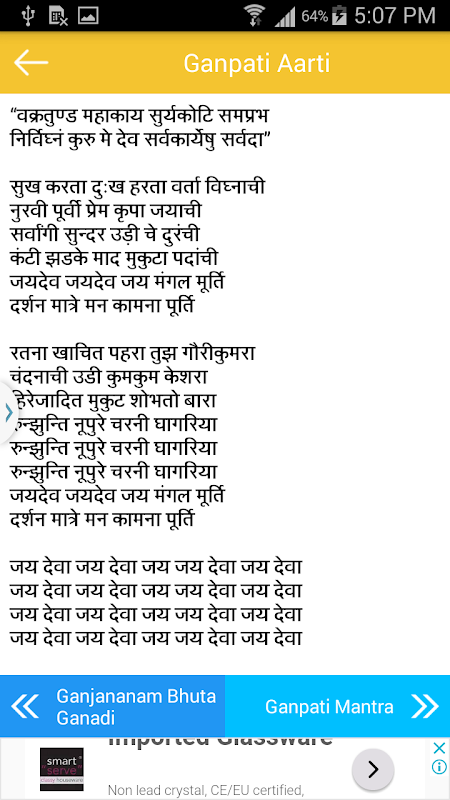 64% 5:07 PM
Ganpati Aarti
“वक्रतुण्ड महाकाय सुर्यकोटि समप्रभ
निर्विघ्नं कुरु मे देव सर्वकार्येषु सर्वदा”
सुख करता दुःख हरता वर्ता विघ्नाची
नुरवी पूर्वी प्रेम कृपा जयाची
सर्वांगी सुन्दर उड़ी चे दुरंची
कंटी झडके माद मुकुटा पदांची
जयदेव जयदेव जय मंगल मूर्ति
दर्शन मात्रे मन कामना पूर्ति
रतना खाचित पहरा तुझ गौरीकुमरा
चंदनाची उडी कुमकुम केशरा
हिरेजादित मुकुट शोभतो बारा
रुन्झुन्ति नूपुरे चरनी घागरिया
रुन्झुन्ति नूपुरे चरनी घागरिया
रुन्झुन्ति नूपुरे चरनी घागरिया
जयदेव जयदेव जय मंगल मूर्ति
दर्शन मात्रे मन कामना पूर्ति
जय देवा जय देवा जय जय देवा जय देवा
जय देवा जय देवा जय जय देवा जय देवा
जय देवा जय देवा जय जय देवा जय देवा
जय देवा जय देवा जय जय देवा जय देवा
Ganjananam Bhuta
Ganadi
Ganpati Mantra
Imported Glassware
smart
serve
Non lead crystal, CE/EU certified,